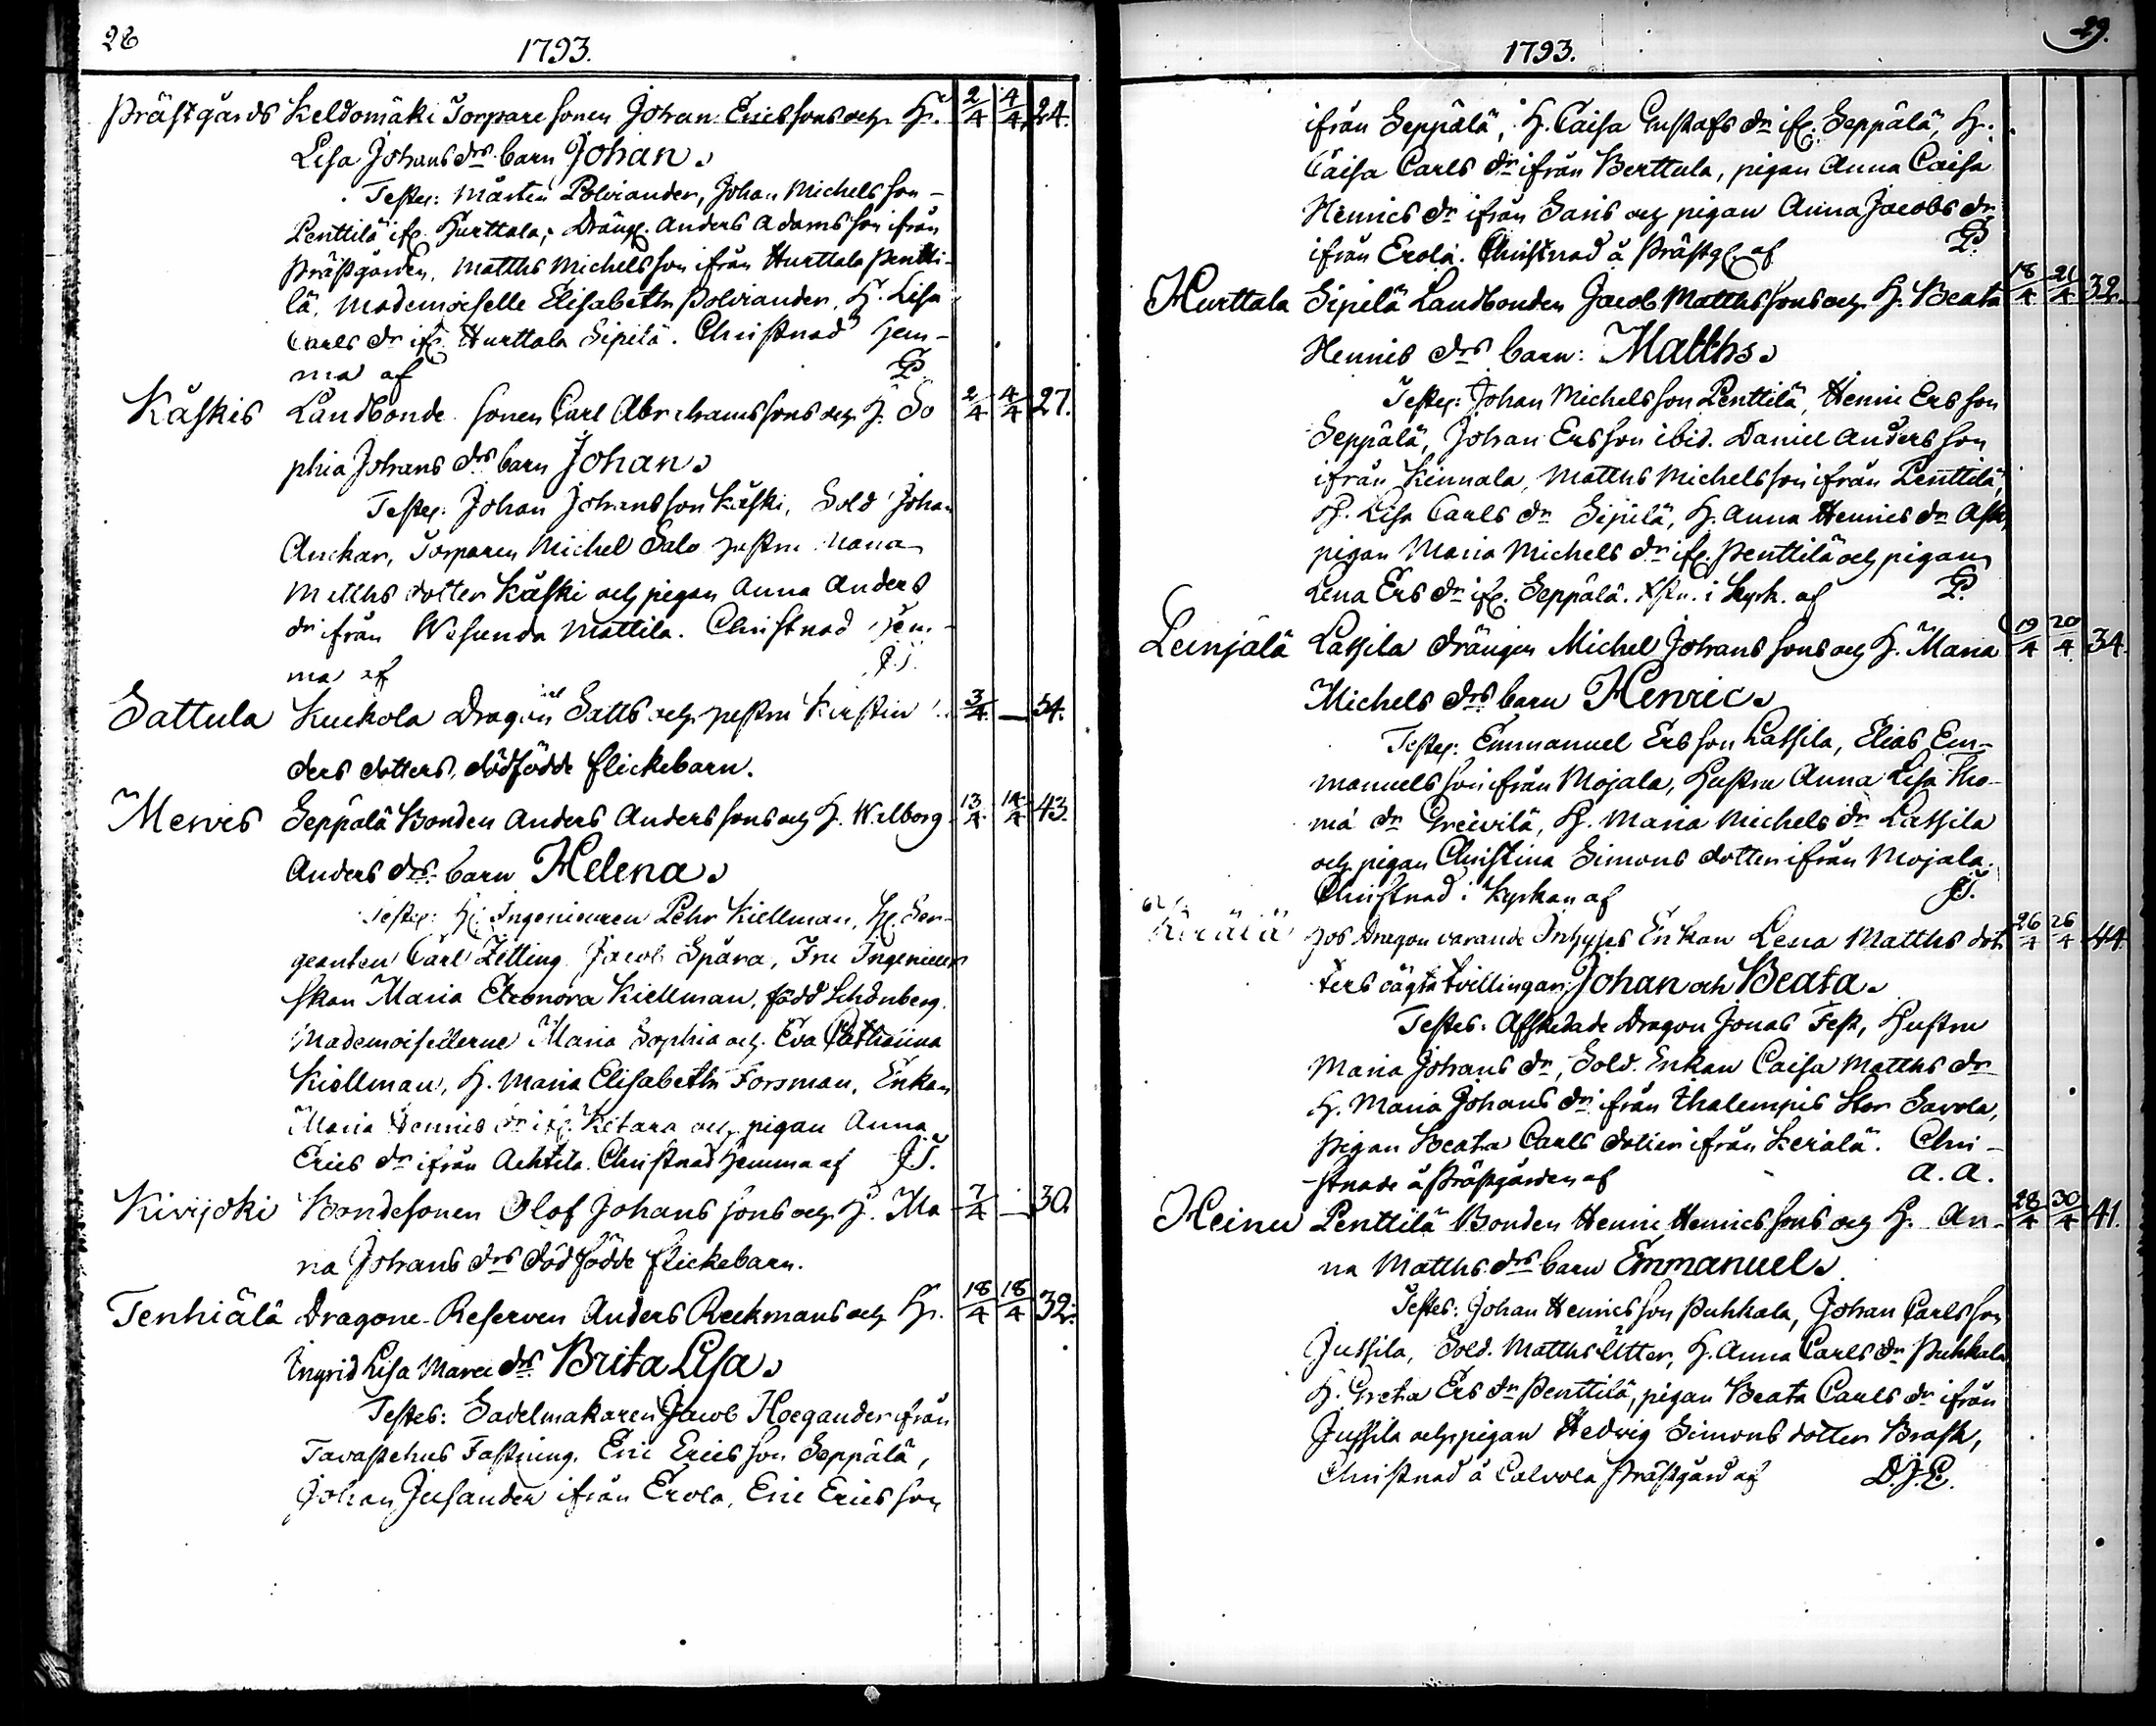 28
1793.
Prästgårds Keldomäki Torpare sonen Johan Ericssons och H. 2/4 4/4 24.
Lisa Johans drs barn Johan.
Testes: Mårten Polviander, Johan Michelsson
Penttilä ifr. Hurttala, Dräng. Anders Adamsson ifrån
Prästgården, Matths Michelsson ifrån Hurttala Pentti-
lä, Mademoiselle Elisabeth Polviander, H. Lisa
Carls dr ifr. Hurttala Sipilä. Christnad hem-
ma af P.
Kåskis Landbonde sonen Carl Abrahamssons och H. So 2/4 4/4 27.
phia Johans drs barn Johan.
Testes: Johan Johansson Kåski, Sold Johan
Anckar, Torparen Michel Salo hustru Maria
Matths dotter Kåski och pigan Anna Anders
dr ifrån Wesunda Mattila. Christnad hem-
ma af J.T.
Sattula Kuckola Dragon Satts och hustru Kirstin 3/4 — 34.
ders dotters, dödfödde flickebarn.
Merves Seppälä Bonden Anders Anderssons och H. Walborg 13/4 14/4 43.
Anders drs barn Helena.
Testes: H. Ingenieuren Pehr Kiellman, H. Ser-
geanten Carl Zitting Jacob Spåra, Fru Ingenieur
skan Maria Eleonora Kiellman, född Schönberg.
Mademoisellerne Maria Sophia och Eva Catharina
Kiellman, H. Maria Elisabeth Forsman, Enkan
Maria Henrics dr ifr. Kitara och pigan Anna
Erics dr ifrån Achtila. Christnad hemma af J.T.
Kivijoki Bondesonen Olof Johans sons och H. Ma 7/4 — 30.
ria Johans drs dödfödde flickebarn.
Tenhiälä Dragone-Reserven Anders Reekmans och H. 18/4 18/4 32.
Ingrid Lisa Marci drs Brita Lisa.
Testes: Sadelmakaren Jacob Hoegander ifrån
Tavastehus Fästning. Eric Ericsson Seppälä,
Johan Jusander ifrån Erola, Eric Ericsson
29.
1793.
ifrån Seppälä, H. Caisa Gustafs dr ifr. Seppälä, H.
Caisa Carls dr ifrån Berttula, pigan Anna Caisa
Henrics dr ifrån Saris och pigan Anna Jacobs dr
ifrån Erola. Christnad å Prästg. af P.
Hurttala Sipilä Landbonden Jacob Matthssons och H. Beata 18/4 21/4 32.
Henrics drs barn: Matths.
Testes: Johan Michelsson Penttilä, Henric Ersson
Seppälä, Johan Ersson ibid. Daniel Andersson
ifrån Kinnala, Matths Michelsson ifrån Penttilä,
H. Lisa Carls dr Sipilä, H. Anna Henrics dr Ask,
pigan Maria Michels dr ifr. Penttilä och pigan
Lena Ers dr ifr. Seppälä. Xstn. i Kyrk. af P.
Leinjälä Lassila drängen Michel Johans sons och H. Maria 19/4 20/4 34.
Michels drs barn Henric.
Testes: Emmanuel Ersson Lassila, Elias Em-
manuelsson ifrån Mojala, Hustru Anna Lisa Tho-
mæ dr Greivilä, H. Maria Michels dr Lassila
och pigan Christina Simons dotter ifrån Mojala.
Christnad i Kyrkan af J.T.
Kerälä hos Dragon varande Inhyses Enkan Lena Matths dot 26/4 26/4 44.
ters oägta tvillingar: Johan och Beata.
Testes: Afskedade Dragon Jonas Fest, Hustru
Maria Johans dr, Sold. Enkan Caisa Matths dr
H. Maria Johans dr ifrån Thalempis Stor Savola,
pigan Beata Carls dotter ifrån Keriälä. Chri-
stnade å Prästgården af A.A.
Heinu Penttilä Bonden Henric Henrics sons och H. An- 28/4 30/4 41.
na Matths drs barn Emmanuel.
Testes: Johan Henricsson Puhkala, Johan Carlsson
Jussila, Sold. Matths Utter, H. Anna Carls dr Puhkala
H. Greta Ers dr Penttilä, pigan Beata Carls dr ifrån
Jussila och pigan Hedvig Simons dotter Brask,
Christnad å Calvola Prästgård af D.J.P.